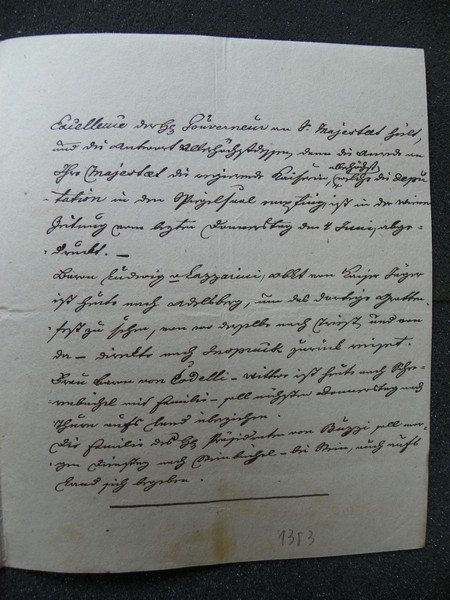 Excellence der H. Gouverneur an Sr. Majestaet hielt,
und die Antwort Allerhöchstdessen, dann die Anrede an
Ihre Majestaet die regierende Kaiserin, allerhöchst welche die Depu-
tation in den Spiegelsaal empfing, ist in der Wiener
Zeitung vom lezten Donnerstag den 4 Juni, abge-
druckt. —
Baron Ludwig v Lazzarini, Obstl von Kaiser Jäger
ist heute nach Adelsberg, um das dortige Grotten-
fest zu sehen, von wo derselbe nach Triest, und von
da – direkte nach Inspruck zurück reiset.
Frau Baron von Codelli – Wittwe ist heute nach
mit Familie – soll nächsten Donnerstag nach
Thurn aufs Land übersiehen.
Die Familie des H. Präsidenten von Buzzi soll mor-
gen Dienstag nach Steinbüchel – bei Stein, auch aufs
Land sich begeben.
1353